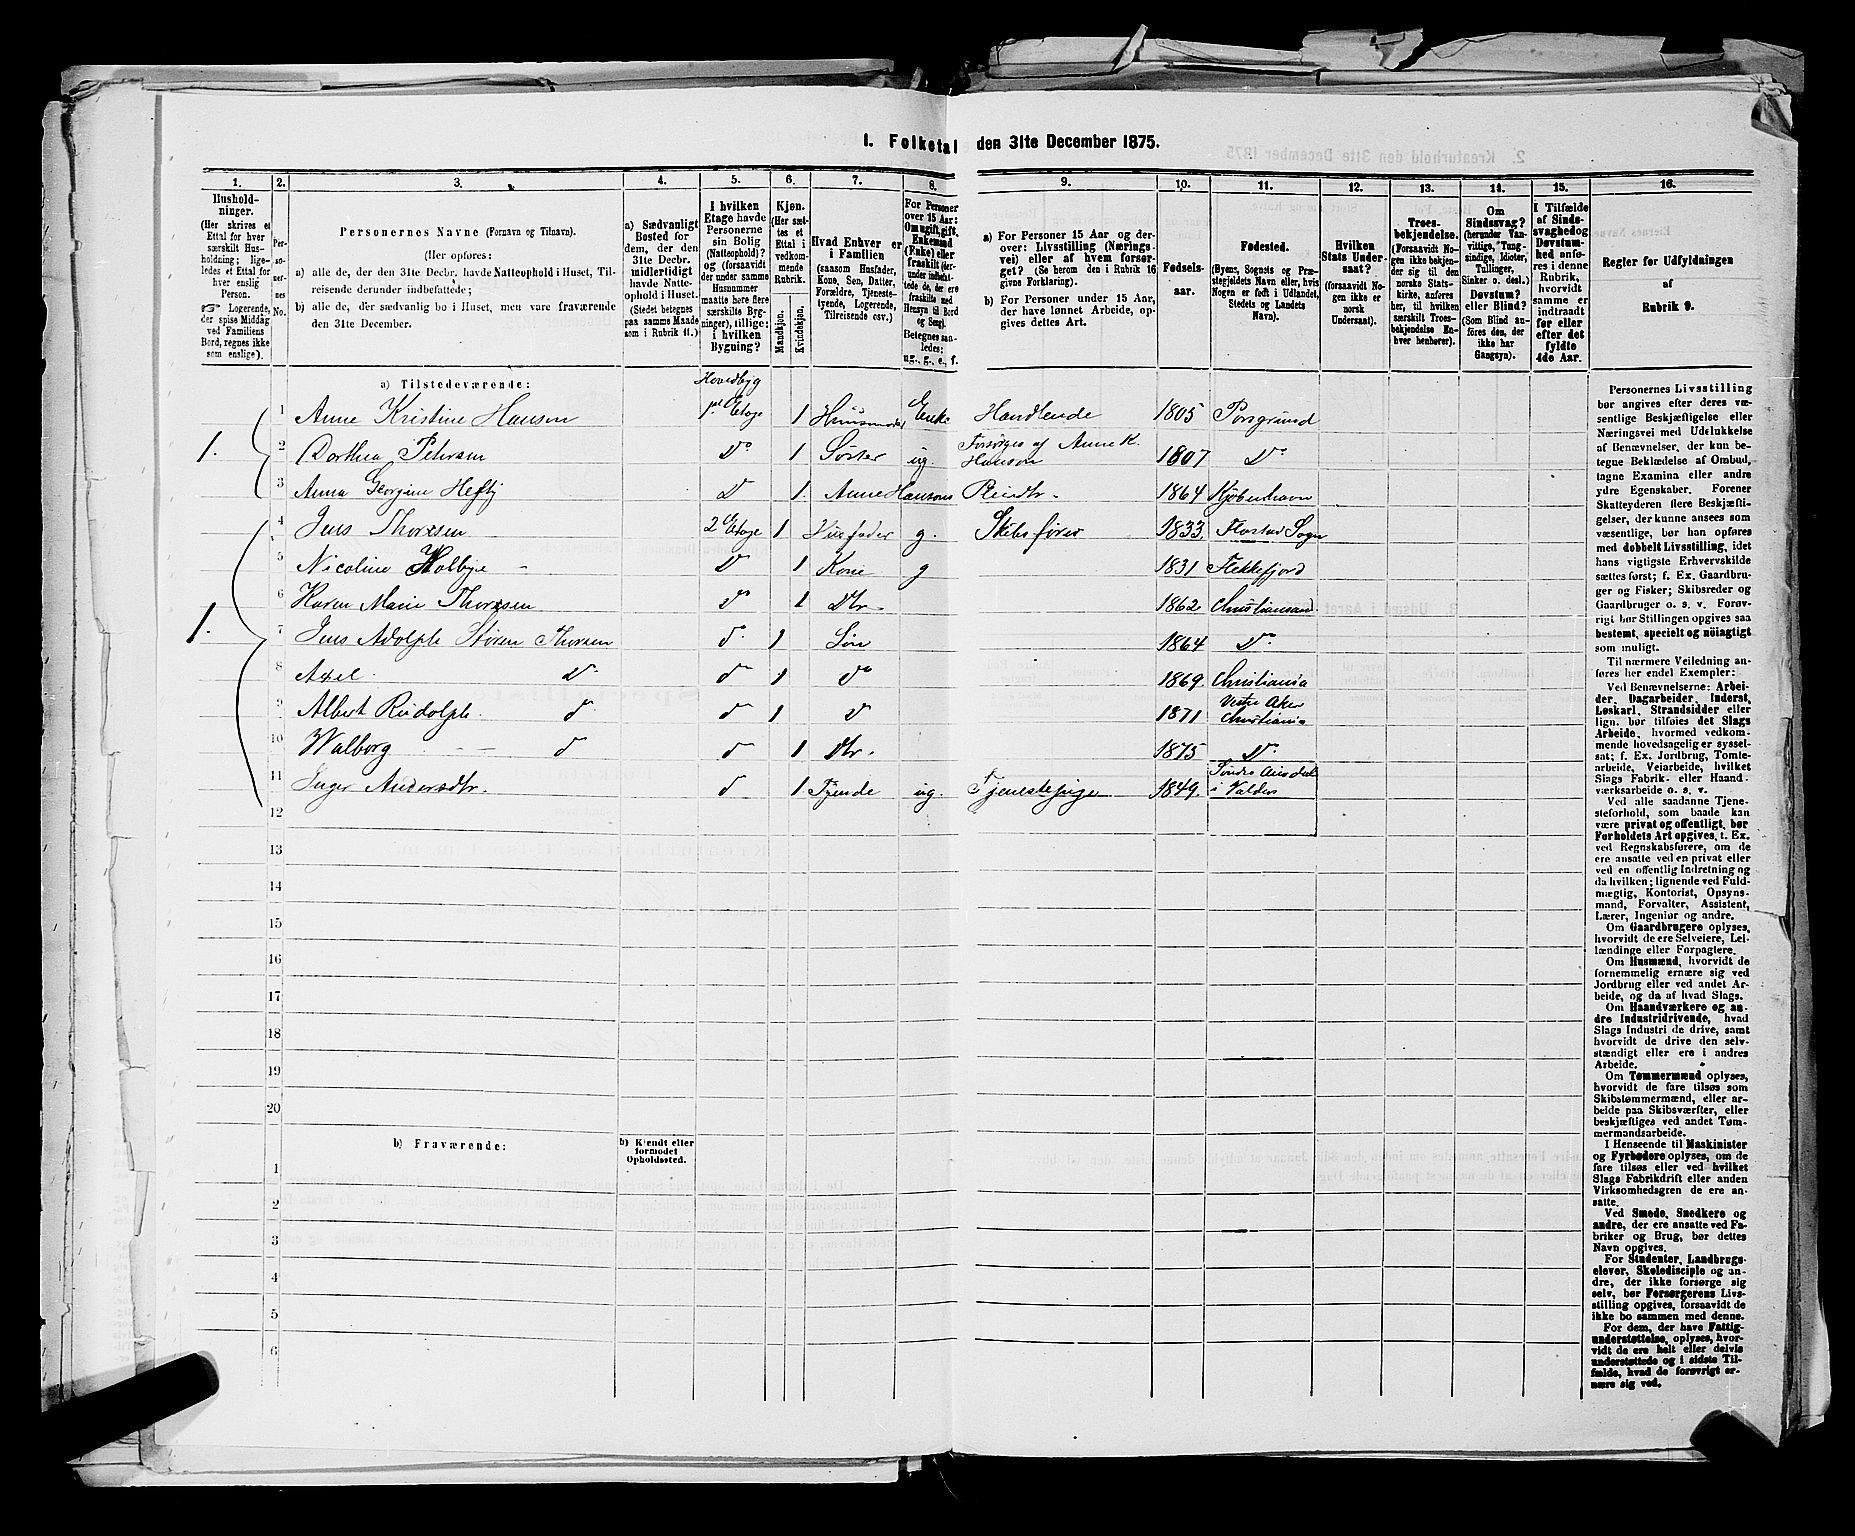 1. Folketal den 31te December 1875.
1. 2. 3. 4. 5. 6. 7. 8. 9. 10. 11. 12. 13. 14. 15. 16.
Hushold-
ninger.
(Her skrives et
Ettal for hver
særskilt Hus-
holdning; lige-
ledes et Ettal for
hver enslig
Person.
Logerende,
der spise Middag
ved Familiens
Bord, regnes ikke
som enslige).
Per-
so-
ner-
nes
No.
Personernes Navne (Fornavn og Tilnavn).
(Her opføres:
a) alle de, der den 31te Decbr. havde Natteophold i Huset, Til-
reisende derunder indbefattede;
b) alle de, der sædvanlig bo i Huset, men vare fraværende
den 31te December.
a) Sædvanligt
Bosted for
dem, der den
31te Decbr.
midlertidigt
havde Natte-
ophold i Huset.
(Stedet betegnes
paa samme Maade
som i Rubrik 11.)
I hvilken
Etage havde
Personerne
sin Bolig
(Natteophold)?
og (forsaavidt
der under samme
Husnummer
maatte høre flere
særskilte Byg-
ninger), tillige:
i hvilken
Bygning?
Kjøn.
(Her sæt-
tes et
Ettal i
vedkom-
mende
Rubrik.
Mandkjøn.
Kvindekjøn.
Hvad Enhver er
i Familien
(saasom Husfader,
Kone, Søn, Datter,
Forældre, Tjeneste-
tyende, Logerende,
Tilreisende osv.)
For Personer
over 15 Aar:
Om ugift, gift,
Enkemand
(Enke) eller
fraskilt (der-
under indbefat-
tede de, der ere
fraskilte med
Hensyn til Bord
og Seng).
Betegnes saa-
ledes:
ug., g., e., f.
a) For Personer 15 Aar og der-
over: Livsstilling (Nærings-
vei) eller af hvem forsør-
get? (Se herom den i Rubrik 16
givne Forklaring).
b) For Personer under 15 Aar,
der have lønnet Arbeide, op-
gives dettes Art.
Fødsels-
aar.
Fødested.
(Byens, Sognets og Præ-
stegjeldets Navn eller, hvis
Nogen er født i Udlandet,
Stedets og Landets
Navn).
Hvilken
Stats Under-
saat?
(forsaavidt No-
gen ikke er
norsk
Undersaat).
Troes-
bekjendelse.
(Forsaavidt No-
gen ikke bekjen-
der sig til den
norske Stats-
kirke, anføres
her, til hvilken
særskilt Troes-
bekjendelse En-
hver henhører).
Om
Sindssvag?
(herunder Van-
vittige, Tung-
sindige, Idioter,
Tullinger,
Sinker o. desl.)
Døvstum?
eller Blind?
(Som Blind an-
føres den, der
ikke har
Gangsyn).
I Tilfælde
af Sinds-
svaghed og
Døvstum-
hed anfø-
res i denne
Rubrik,
hvorvidt
samme er
indtraadt
før eller
efter det
fyldte
4de Aar.
Regler for Udfyldningen
af
Rubrik 9.
a) Tilstedeværende:
1. 1 Anne Kristine Hansen Hovedbyg 1st Etage 1 Huusmoder Enke Handlende 1805 Porsgrund
2 Dorthea Petersen Do 1 Søster ug. Forsørges af Anne K. Hansen 1807 Do
3 Anna Georgine Hefty D 1. Anne Hansens Pleiedtr. 1864 Kjøbenhavn
1. 4 Jens Thorsen 2 Etage 1 Husfader g. Skibsfører 1833. Flostad Sogn
5 Nicoline Holbye Do 1 Kone g 1831 Flekkefjord
6 Karen Marie Thorsen Do 1 Dtr. 1862 Christiansand
7 Jens Adolph Støren Thorsen d. 1 Søn 1864 Do
8 Axel. Do d 1 do 1869 Christiania
9 Albert Rudolph. d d 1 d 1871 Vestre Aker Christiania
10 Walborg d d 1 Dtr. 1875 Do
11 Inger Andersdtr. d 1 Tjende ug. Tjenestepige 1849. Søndre Aurdal i Valders
12
13
14
15
16
17
18
19
20
b) Fraværende:
b) Kjendt eller
formodet
Opholdssted.
1
2
3
4
5
6
Personernes Livsstilling
bør angives efter deres væ-
sentlige Beskjæftigelse eller
Næringsvei med Udelukkelse
af Benævnelser, der kun be-
tegne Beklædelse af Ombud,
tagne Examina eller andre
ydre Egenskaber. Forener
Skatteyderen flere Beskjæfti-
gelser, der kunne ansees som
væsentlige, bør han opføres
med dobbelt Livsstilling, idet
hans vigtigste Erhvervskilde
sættes først; f. Ex. Gaardbru-
ger og Fisker; Skibsreder og
Gaardbruger o. s. v. Forøv-
rigt bør Stillingen opgives saa
bestemt, specielt og nøiagtigt
som muligt.
Til nærmere Veiledning an-
føres her endel Exempler:
Ved Benævnelserne: Arbei-
der, Dagarbeider, Inderst,
Løskarl, Strandsidder eller
lign. bør tilføies det Slags
Arbeide, hvormed vedkom-
mende hovedsagelig er syssel-
sat; f. Ex. Jordbrug, Tomte-
arbeide, Veiarbeide, hvilket
Slags Fabrik- eller Haand-
værksarbeide o. s. v.
Ved alle saadanne Tjene-
steforhold, som baade kan
være privat og offentligt, bør
Forholdets Art opgives, t. Ex.
ved Regnskabsførere, om de
ere ansatte ved en privat eller
ved en offentlig Indretning og
da hvilken; lignende ved Fuld-
mægtig, Kontorist, Opsyns-
mand, Forvalter, Assistent,
Lærer, Ingeniør og andre.
Om Gaardbrugere oplyses,
hvorvidt de ere Selveiere, Lei-
lændinge eller Forpagtere.
Om Husmænd, hvorvidt de
fornemmelig ernære sig ved
Jordbrug eller ved andet Ar-
beide, og da af hvad Slags.
Om Haandværkere og an-
dre Industridrivende, hvad
Slags Industri de drive, samt
hvorvidt de drive den selv-
stændigt eller ere i andres
Arbeide.
Om Tømmermænd oplyses,
hvorvidt de fare tilsøs som
Skibstømmermænd, eller ar-
beide paa Skibsværfter, eller
beskjæftiges ved andet Tøm-
mermandsarbeide.
I Henseende til Maskinister
og Fyrbødere oplyses, om de
fare tilsøs eller ved hvilket
Slags Fabrikdrift eller anden
Virksomhedsgren de ere an-
satte.
Ved Smede, Snedkere og
andre, der ere ansatte ved Fa-
briker og Brug, bør dettes
Navn opgives.
For Studenter, Landbrugs-
elever, Skoledisciple og an-
dre, der ikke forsørge sig
selv, bør Forsørgerens Livs-
stilling opgives, forsaavidt de
ikke bo sammen med denne.
For dem, der have Fattig-
understøttelse, oplyses, hvor-
vidt de ere helt eller delvis
understøttede og i sidste Til-
fælde, hvad de forøvrigt er-
nære sig ved.